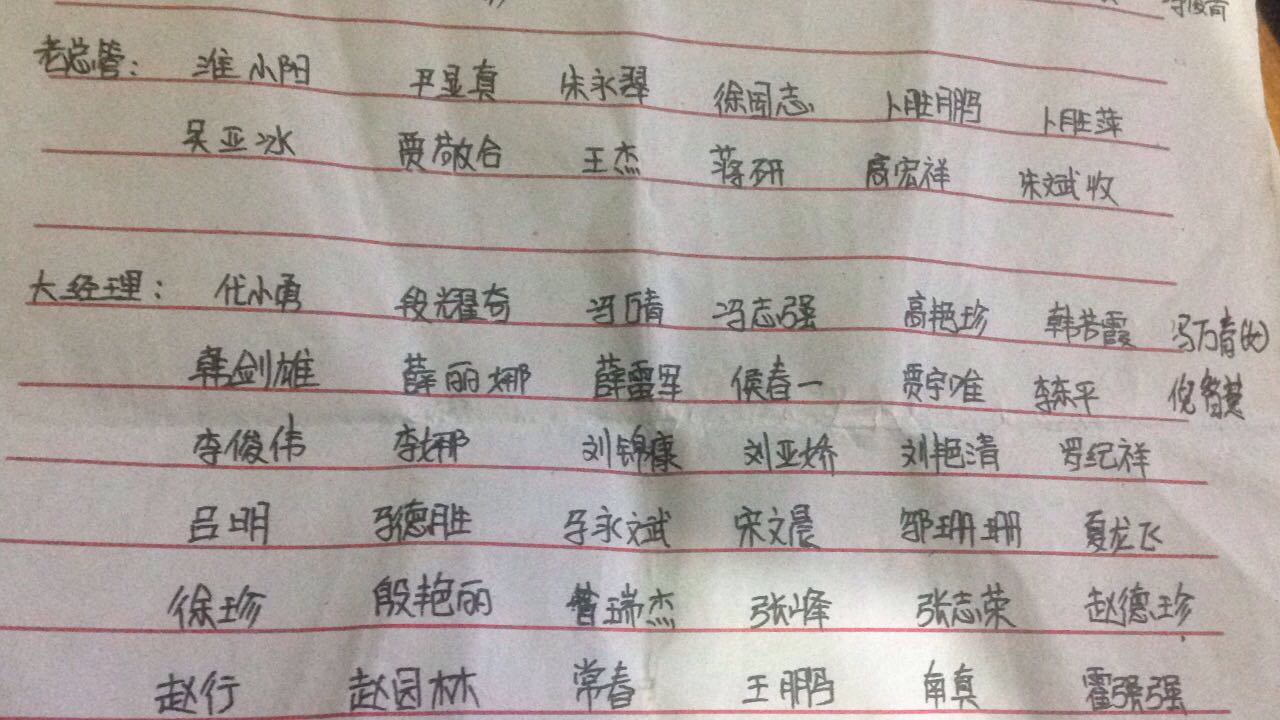 老总管： 淮小阳 尹显真 朱永翠 徐国志 卜胜鹏 卜胜萍
吴亚冰 贾敬合 王杰 蒋研 高宏祥 朱斌收
大经理： 代小勇 段耀奇 冯万青 冯志强 高艳珍 韩若霞 冯万青(女)
韩剑雄 薛丽娜 薛雷军 侯春一 贾宇唯 李东平 倪智慧
李俊伟 李娜 刘锦康 刘亚娇 刘艳清 罗纪祥
吕明 马德胜 马永斌 宋文晨 邹珊珊 夏龙飞
徐珍 殷艳丽 曾瑞杰 张峰 张志荣 赵德珍
赵行 赵园林 常春 王鹏 南真 霍强强